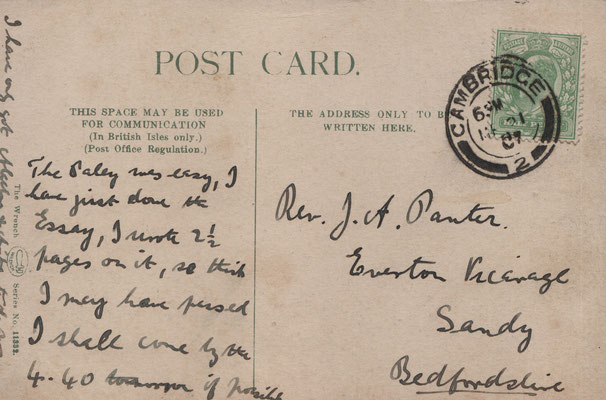 POST CARD.
THIS SPACE MAY BE USED
FOR COMMUNICATION
(In British Isles only.)
(Post Office Regulation.)
THE ADDRESS ONLY TO B
WRITTEN HERE.
CAMBRIDGE
21
07
2
The Paley was easy, I
have just done the
Essay, I wrote 2½
pages on it, so think
I may have passed
I shall come by the
4.40 tomorrow if possible
Rev. J. A. Panter.
Everton Vicarage
Sandy
Bedfordshire
I have only got
The Wrench
Series No. 11352.